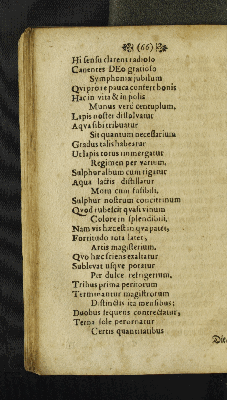 (66)
Hi sensu clarent radioso
Canentes DEo gratioso
Symphoniæ jubilum
Qvi pro re pauca confert bonis
Hac in vita & in polis
Munus verò centuplum,
Lapis noster dissolvatur
Aqva sibi tribuatur
Sit quantum necessarium
Gradus talis habeatur
Ut lapis totus immergatur
Regimen per varium.
Sulphur album cum rigatur
Aqua lactis distillatur
Motu cum fusibili.
Sulphur nostrum concitrinum
Qvod rubescit qvasi vinum
Colore in splendidiori,
Nam vis hæc est in qva patet,
Fortitudo tota latet,
Artis magisterium.
Qvo hæc sciens exaltatur
Sublevat usqve potatur
Per dulce refrigerium,
Tribus prima peritorum
Terminantur magistrorum
Distinctis ita mensibus;
Duobus sequens contrectatur,
Terna sole perornatur
Certis quantitatibus